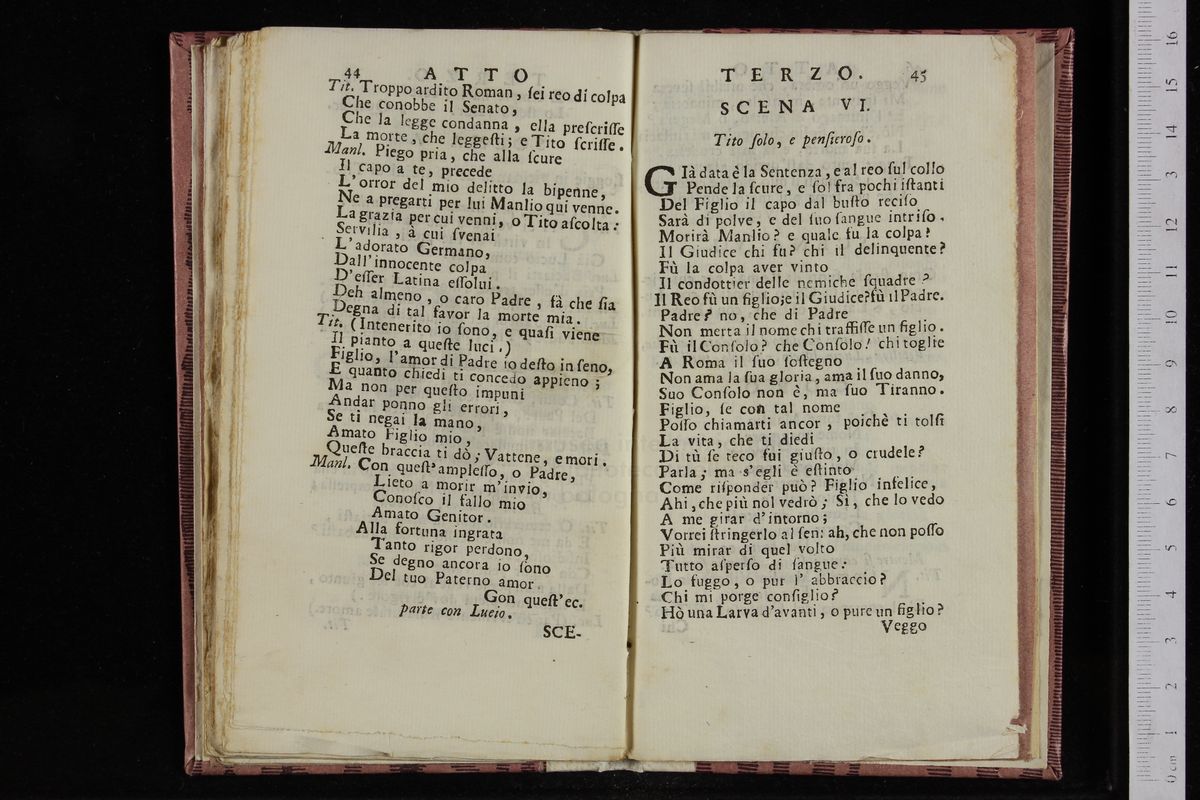 44 ATTO
Tit. Troppo ardito Roman, ſei reo di colpa
Che conobbe il Senato,
Che la legge condanna, ella preſcriſſe
La morte, che leggeſti; e Tito ſcriſſe.
Manl. Piego pria, che alla ſcure
Il capo a te, precede
L'orror del mio delitto la bipenne,
Ne a pregarti per lui Manlio qui venne.
La grazia per cui venni, o Tito aſcolta:
Servilia, à cui ſvenai
L'adorato Germano,
Dall'innocente colpa
D'eſſer Latina eſſolui.
Deh almeno, o caro Padre, fà che ſia
Degna di tal favor la morte mia.
Tit. (Intenerito io ſono, e quaſi viene
Il pianto a queſte luci.)
Figlio, l'amor di Padre io deſto in ſeno,
E quanto chiedi ti concedo appieno;
Ma non per queſto impuni
Andar ponno gli errori,
Se ti negai la mano,
Amato Figlio mio,
Queſte braccia ti dò; Vattene, e mori.
Manl. Con queſt'ampleſſo, o Padre,
Lieto a morir m'invio,
Conoſco il fallo mio
Amato Genitor.
Alla fortuna ingrata
Tanto rigor perdono,
Se degno ancora io ſono
Del tuo Paterno amor.
Gon queſt'ec.
parte con Lucio.
SCE-
TERZO. 45
SCENA VI.
Tito ſolo, e penſieroſo.
Già data è la Sentenza, e al reo ſul collo
Pende la ſcure, e ſol fra pochi iſtanti
Del Figlio il capo dal buſto reciſo
Sarà di polve, e del ſuo ſangue intriſo.
Morirà Manlio? e quale fu la colpa?
Il Giudice chi fu? chi il delinquente?
Fù la colpa aver vinto
Il condottier delle nemiche ſquadre?
Il Reo fù un figlio; e il Giudice? fù il Padre.
Padre? no, che di Padre
Non merta il nome chi traffiſſe un figlio.
Fù il Conſolo? che Conſolo! chi toglie
A Roma il ſuo ſoſtegno
Non ama la ſua gloria, ama il ſuo danno,
Suo Conſolo non è, ma ſuo Tiranno.
Figlio, ſe con tal nome
Poſſo chiamarti ancor, poichè ti tolſi
La vita, che ti diedi
Di tù ſe teco fui giuſto, o crudele?
Parla; ma s'egli è eſtinto
Come riſponder può? Figlio infelice,
Ahi, che più nol vedrò; Sì, che lo vedo
A me girar d'intorno;
Vorrei ſtringerlo al ſen: ah, che non poſſo
Più mirar di quel volto
Tutto aſperſo di ſangue:
Lo fuggo, o pur l'abbraccio?
Chi mi porge conſiglio?
Hò una Larva d'avanti, o pure un figlio?
Veggo